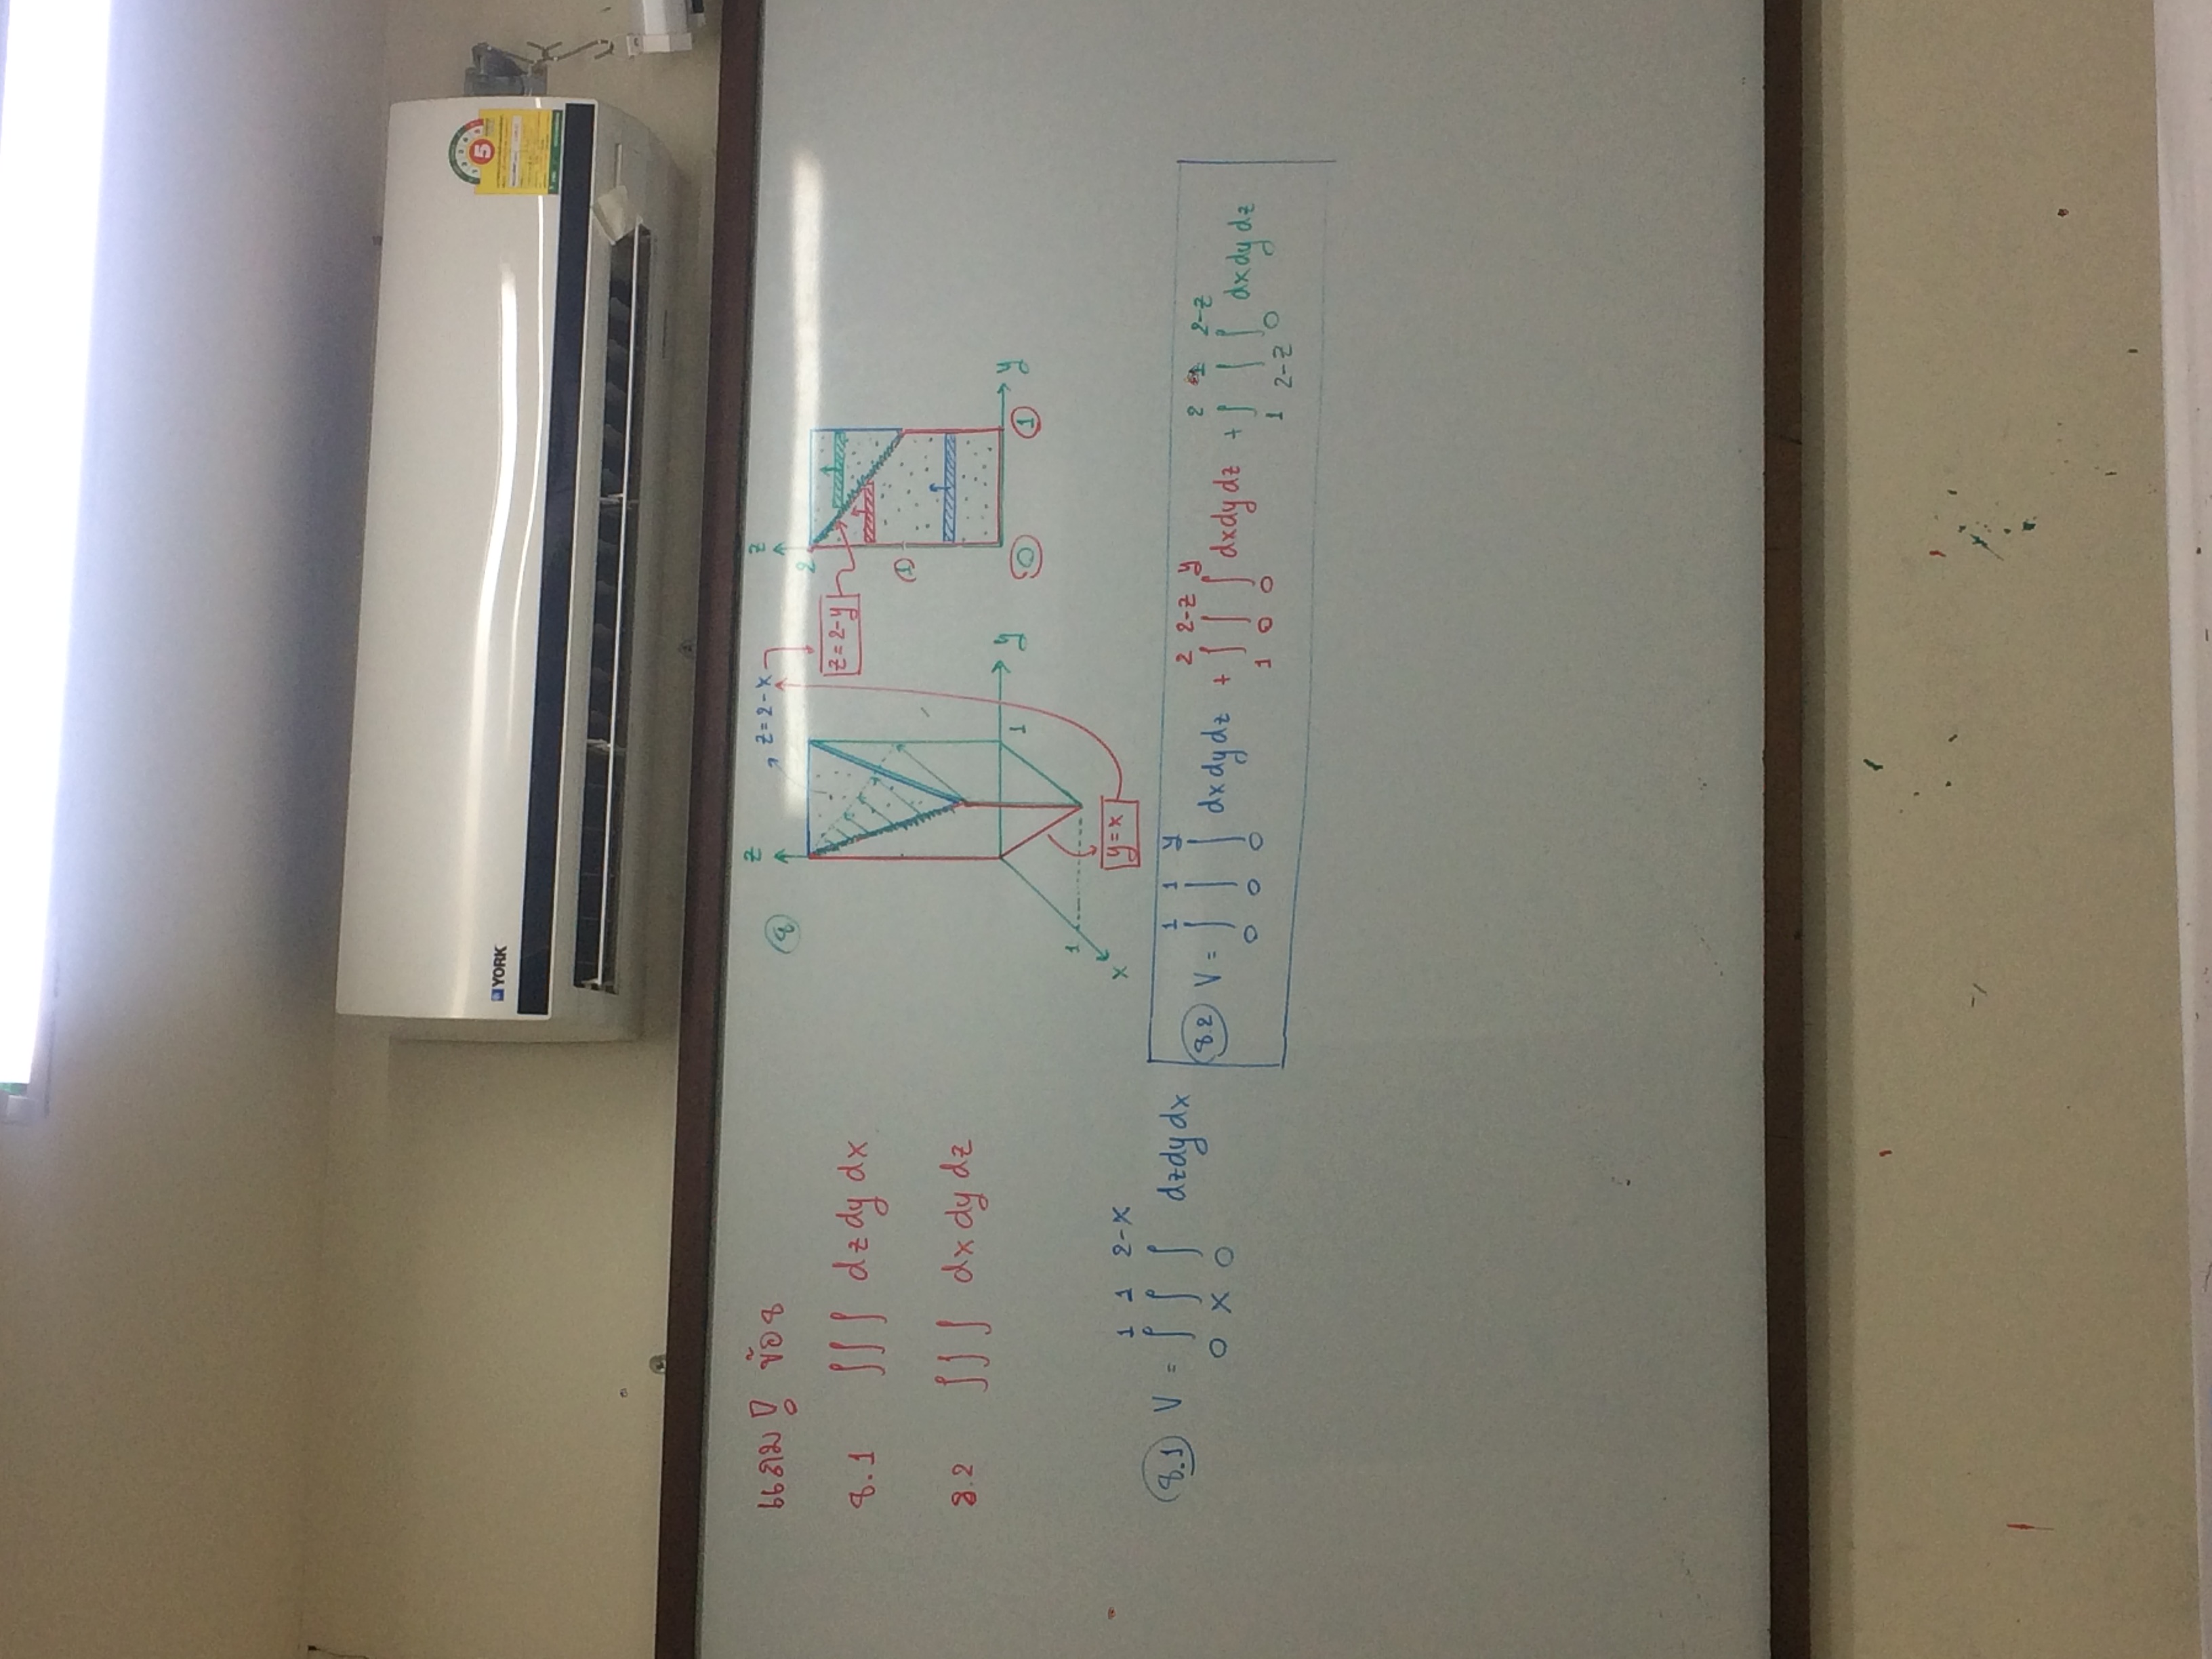 YORK
5
แถม! ข้อ 8
8.1 ∫∫∫ dz dy dx
8.2 ∫∫∫ dx dy dz
8
z
z = 2-x
z = 2-y
1
y
1
x
y = x
z
2
1
0
1
y
8.1 V = ∫₀¹ ∫ₓ¹ ∫₀²⁻ˣ dz dy dx
8.2 V = ∫₀¹ ∫₀¹ ∫₀^y dx dy dz + ∫₁² ∫₀^(2-z) ∫₀^y dx dy dz + ∫₁² ∫_(2-z)^1 ∫₀^(2-z) dx dy dz